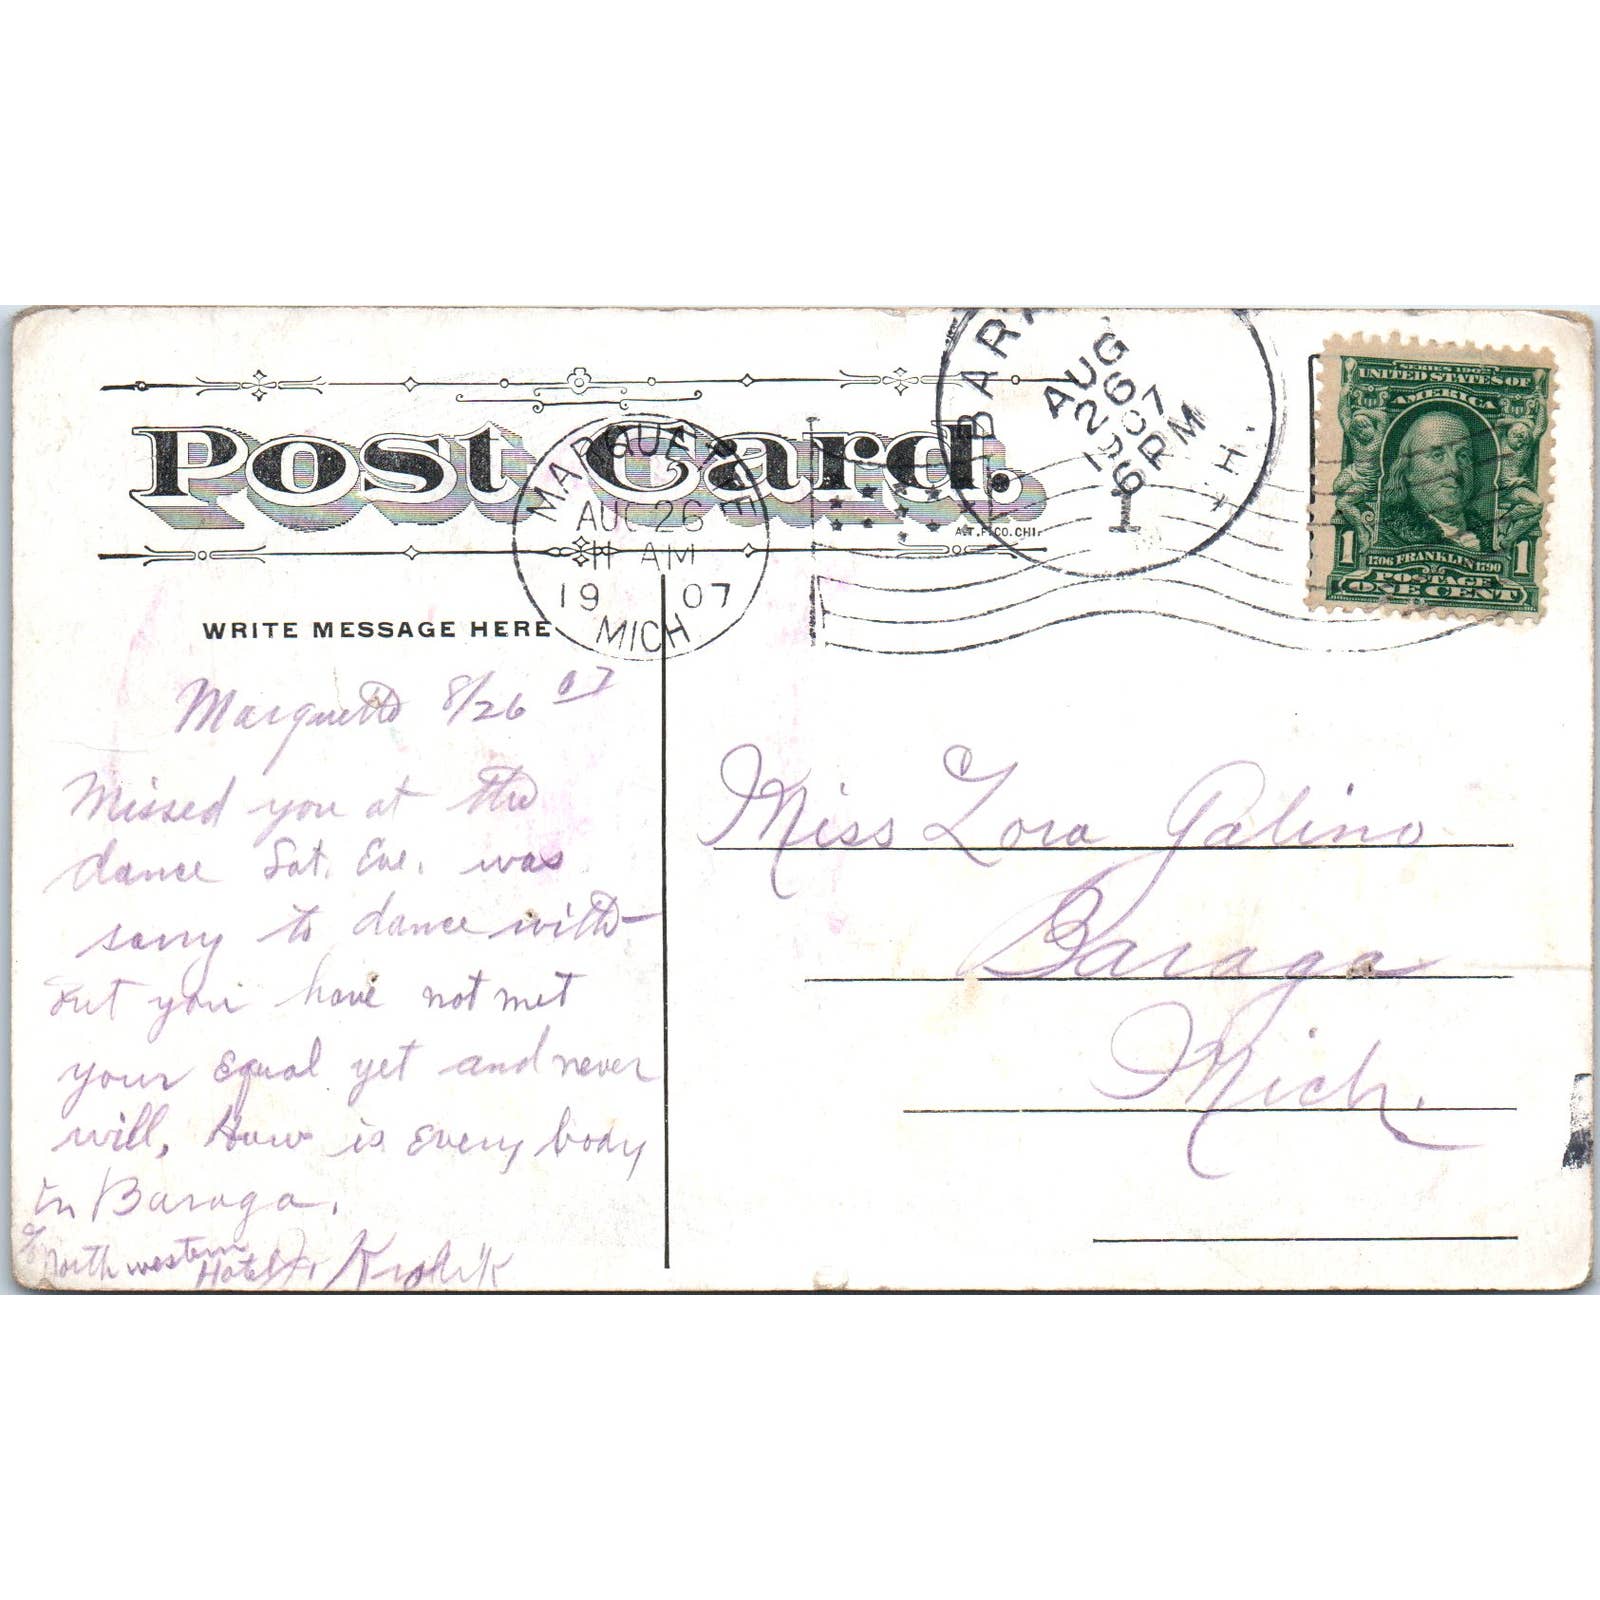 Post Card.
A.T.F.CO.CHI.
WRITE MESSAGE HERE
MARQUETTE
5
AUG 26
11 AM
19 07
MICH
BARA
AUG
26
1907
6PM
1
H.
SERIES 1902
UNITED STATES OF
AMERICA
1 1
1706 FRANKLIN 1790
POSTAGE
ONE CENT
Marquette 8/26 07
Missed you at the
dance Sat. Eve. was
sorry to dance with-
out you have not met
your Equal yet and never
will. How is Every body
in Baraga.
c/o North western
Hotel
Krolik
Miss Lora Galino
Baraga
Mich.